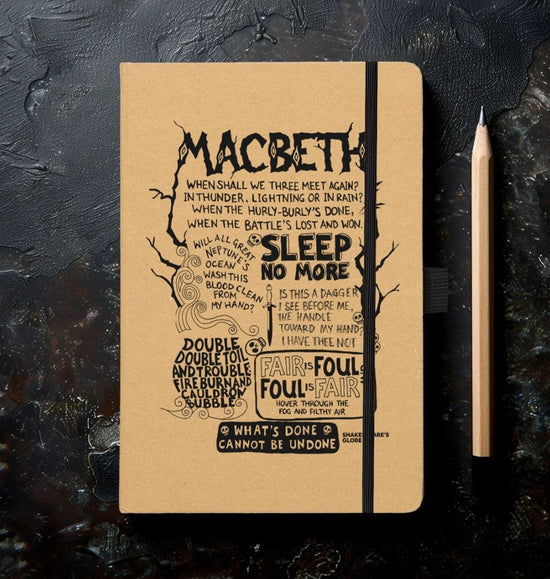 MACBETH
WHEN SHALL WE THREE MEET AGAIN?
IN THUNDER, LIGHTNING OR IN RAIN?
WHEN THE HURLY-BURLY'S DONE,
WHEN THE BATTLE'S LOST AND WON.
WILL ALL GREAT
NEPTUNE'S
OCEAN
WASH THIS
BLOOD CLEAN
FROM
MY HAND?
SLEEP
NO MORE
IS THIS A DAGGER
I SEE BEFORE ME,
THE HANDLE
TOWARD MY HAND?
I HAVE THEE NOT
DOUBLE,
DOUBLE TOIL
AND TROUBLE
FIRE BURN AND
CAULDRON
BUBBLE
FAIR IS FOUL
FOUL IS FAIR
HOVER THROUGH THE
FOG AND FILTHY AIR
WHAT'S DONE
CANNOT BE UNDONE
SHAKESPEARE'S
GLOBE